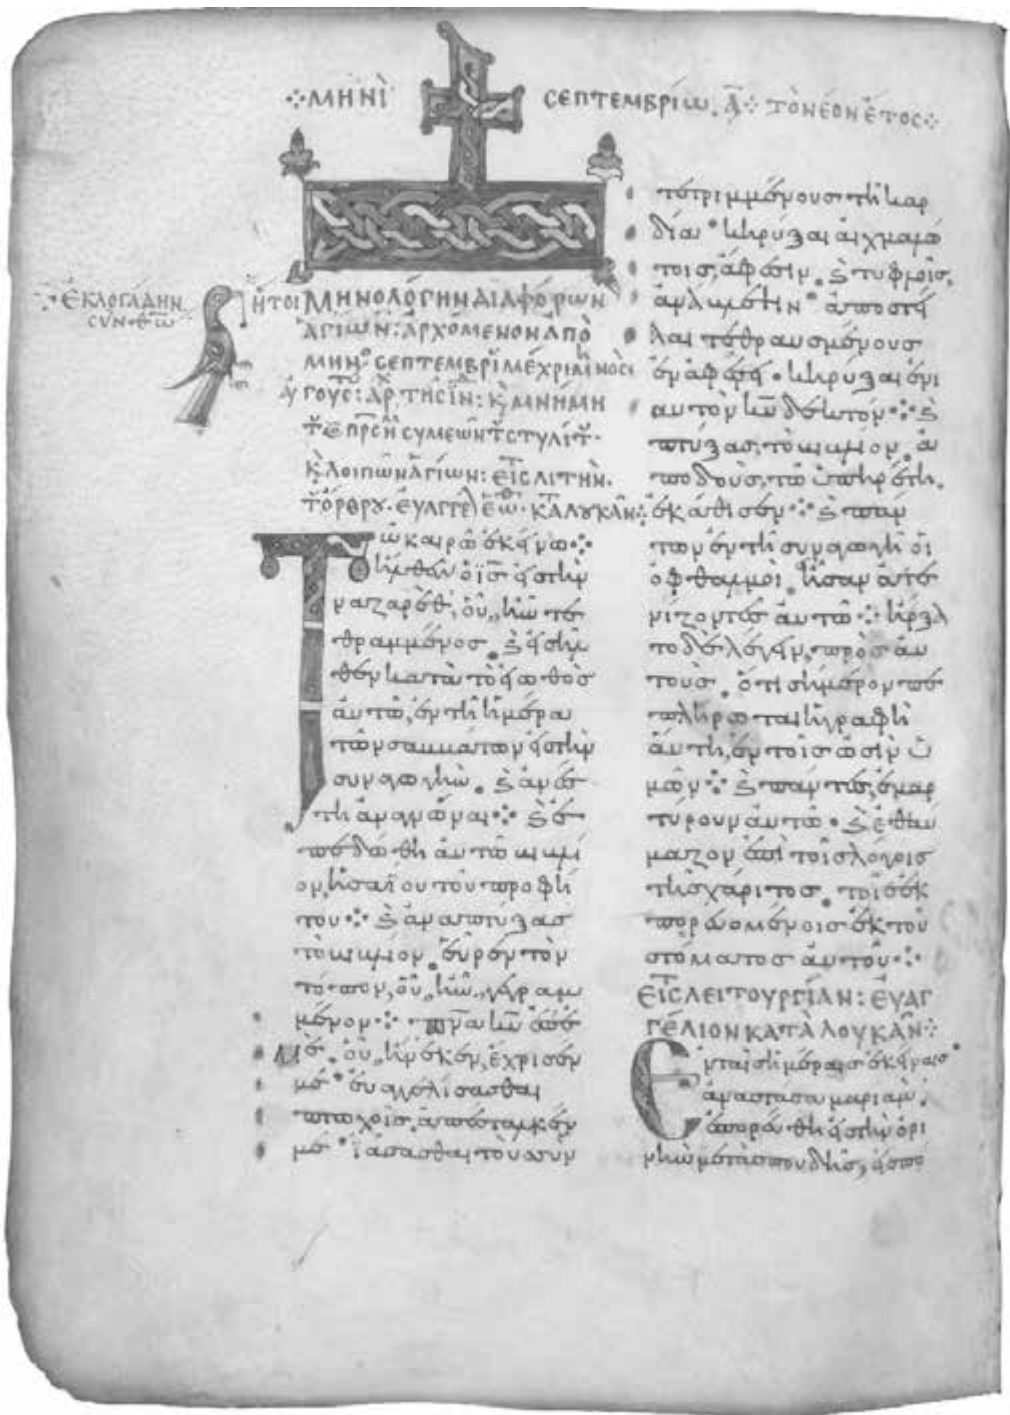 ⁘ΜΗΝῚ ΣΕΠΤΕΜΒΡΊΩ. Ᾱ ⁘ ΤῸΝ ΝΈΟΝ ἜΤΟΣ⁘
ἘΚΛΟΓΆΔΗΝ
ΣΥΝ
ἬΤΟΙ ΜΗΝΟΛΌΓΗΝ ΔΙΑΦΌΡΩΝ
ἉΓΊΩΝ: ἈΡΧΌΜΕΝΟΝ ἈΠῸ
ΜΗΝ ΣΕΠΤΕΜΒΡΊ ΜΈΧΡΙ ΜΗΝΟΣ
ΑΥΓΟΥΣ: ΑΡ ΤΗΣ ΙΝ: Κ ΜΝΗΜΗ
ΣΥΜΕΩΝ Τ ΣΤΥΛΙΤ
Κ ΛΟΙΠΩΝ ἉΓΊΩΝ: ΕΙΣ ΛΙΤΗΝ.
ΤΟΡΘΡΟΥ. ΕΥΑΓΓΕ ΕΩ. ΚΤΑ ΛΟΥΚΑΝ⁘
Τῶ καιρῶ ἐκείνω⁘
ἦλθεν ὁ ῑς̄ εἰς τὴν
ναζαρέθ, οὗ ἦν τε
θραμμένος. καὶ εἰσῆλ
θεν κατὰ τὸ εἰωθὸς
αὐτῶ, ἐν τῆ ἡμέρα
τῶν σαββάτων εἰς τὴν
συναγωγήν. καὶ ἀνέσ
τη ἀναγνῶναι⁘ καὶ ἐ
πεδόθη αὐτῶ βιβλί
ον ἡσαΐου τοῦ προφή
του⁘ καὶ ἀναπτύξας
τὸ βιβλίον. εὗρεν τὸν
τόπον, οὗ ἦν γεγραμ
μένον⁘ πν̄α κῡ ἐπ' ἐ
μέ. οὗ εἵνεκεν, ἔχρισέν
με· εὐαγγελίσασθαι
πτωχοῖς, ἀπέσταλκέν
με· ἰάσασθαι τοὺς συν
τετριμμένους τῆ καρ
δία· κηρύξαι αἰχμαλώ
τοις, ἄφεσιν. καὶ τυφλοῖς,
ἀνάβλεψιν· ἀποστεῖ
λαι τεθραυσμένους
ἐν ἀφέσει· κηρύξαι ἐνι
αυτὸν κῡ δεκτόν⁘ καὶ
πτύξας, τὸ βιβλίον. ἀ
ποδοὺς, τῶ ὑπηρέτη.
ἐκάθισεν⁘ καὶ πάν
των ἐν τῆ συναγωγῆ οἱ
ὀφθαλμοὶ. ἦσαν ἀτε
νίζοντες αὐτῶ⁘ ἤρξα
το δὲ λέγειν, πρὸς αὐ
τοὺς. ὅτι σήμερον πε
πλήρωται ἡ γραφὴ
αὕτη, ἐν τοῖς ὠσὶν ὑ
μῶν⁘ καὶ πάντες, ἐμαρ
τύρουν αὐτῶ. καὶ ἐθαύ
μαζον ἐπὶ τοῖς λόγοις
τῆς χάριτος. τοῖς ἐκ
πορευομένοις ἐκ τοῦ
στόματος αὐτοῦ⁘
ΕΙΣ ΛΕΙΤΟΥΡΓΊΑΝ: ΕΥΑΓ
ΓΈΛΙΟΝ ΚΑΤᾺ ΛΟΥΚΑ͂Ν⁘
Ἐν ταῖς ἡμέραις ἐκείναις·
ἀναστᾶσα μαριάμ.
ἐπορεύθη εἰς τὴν ὀρι
νὴν μετὰ σπουδῆς, εἰς πό